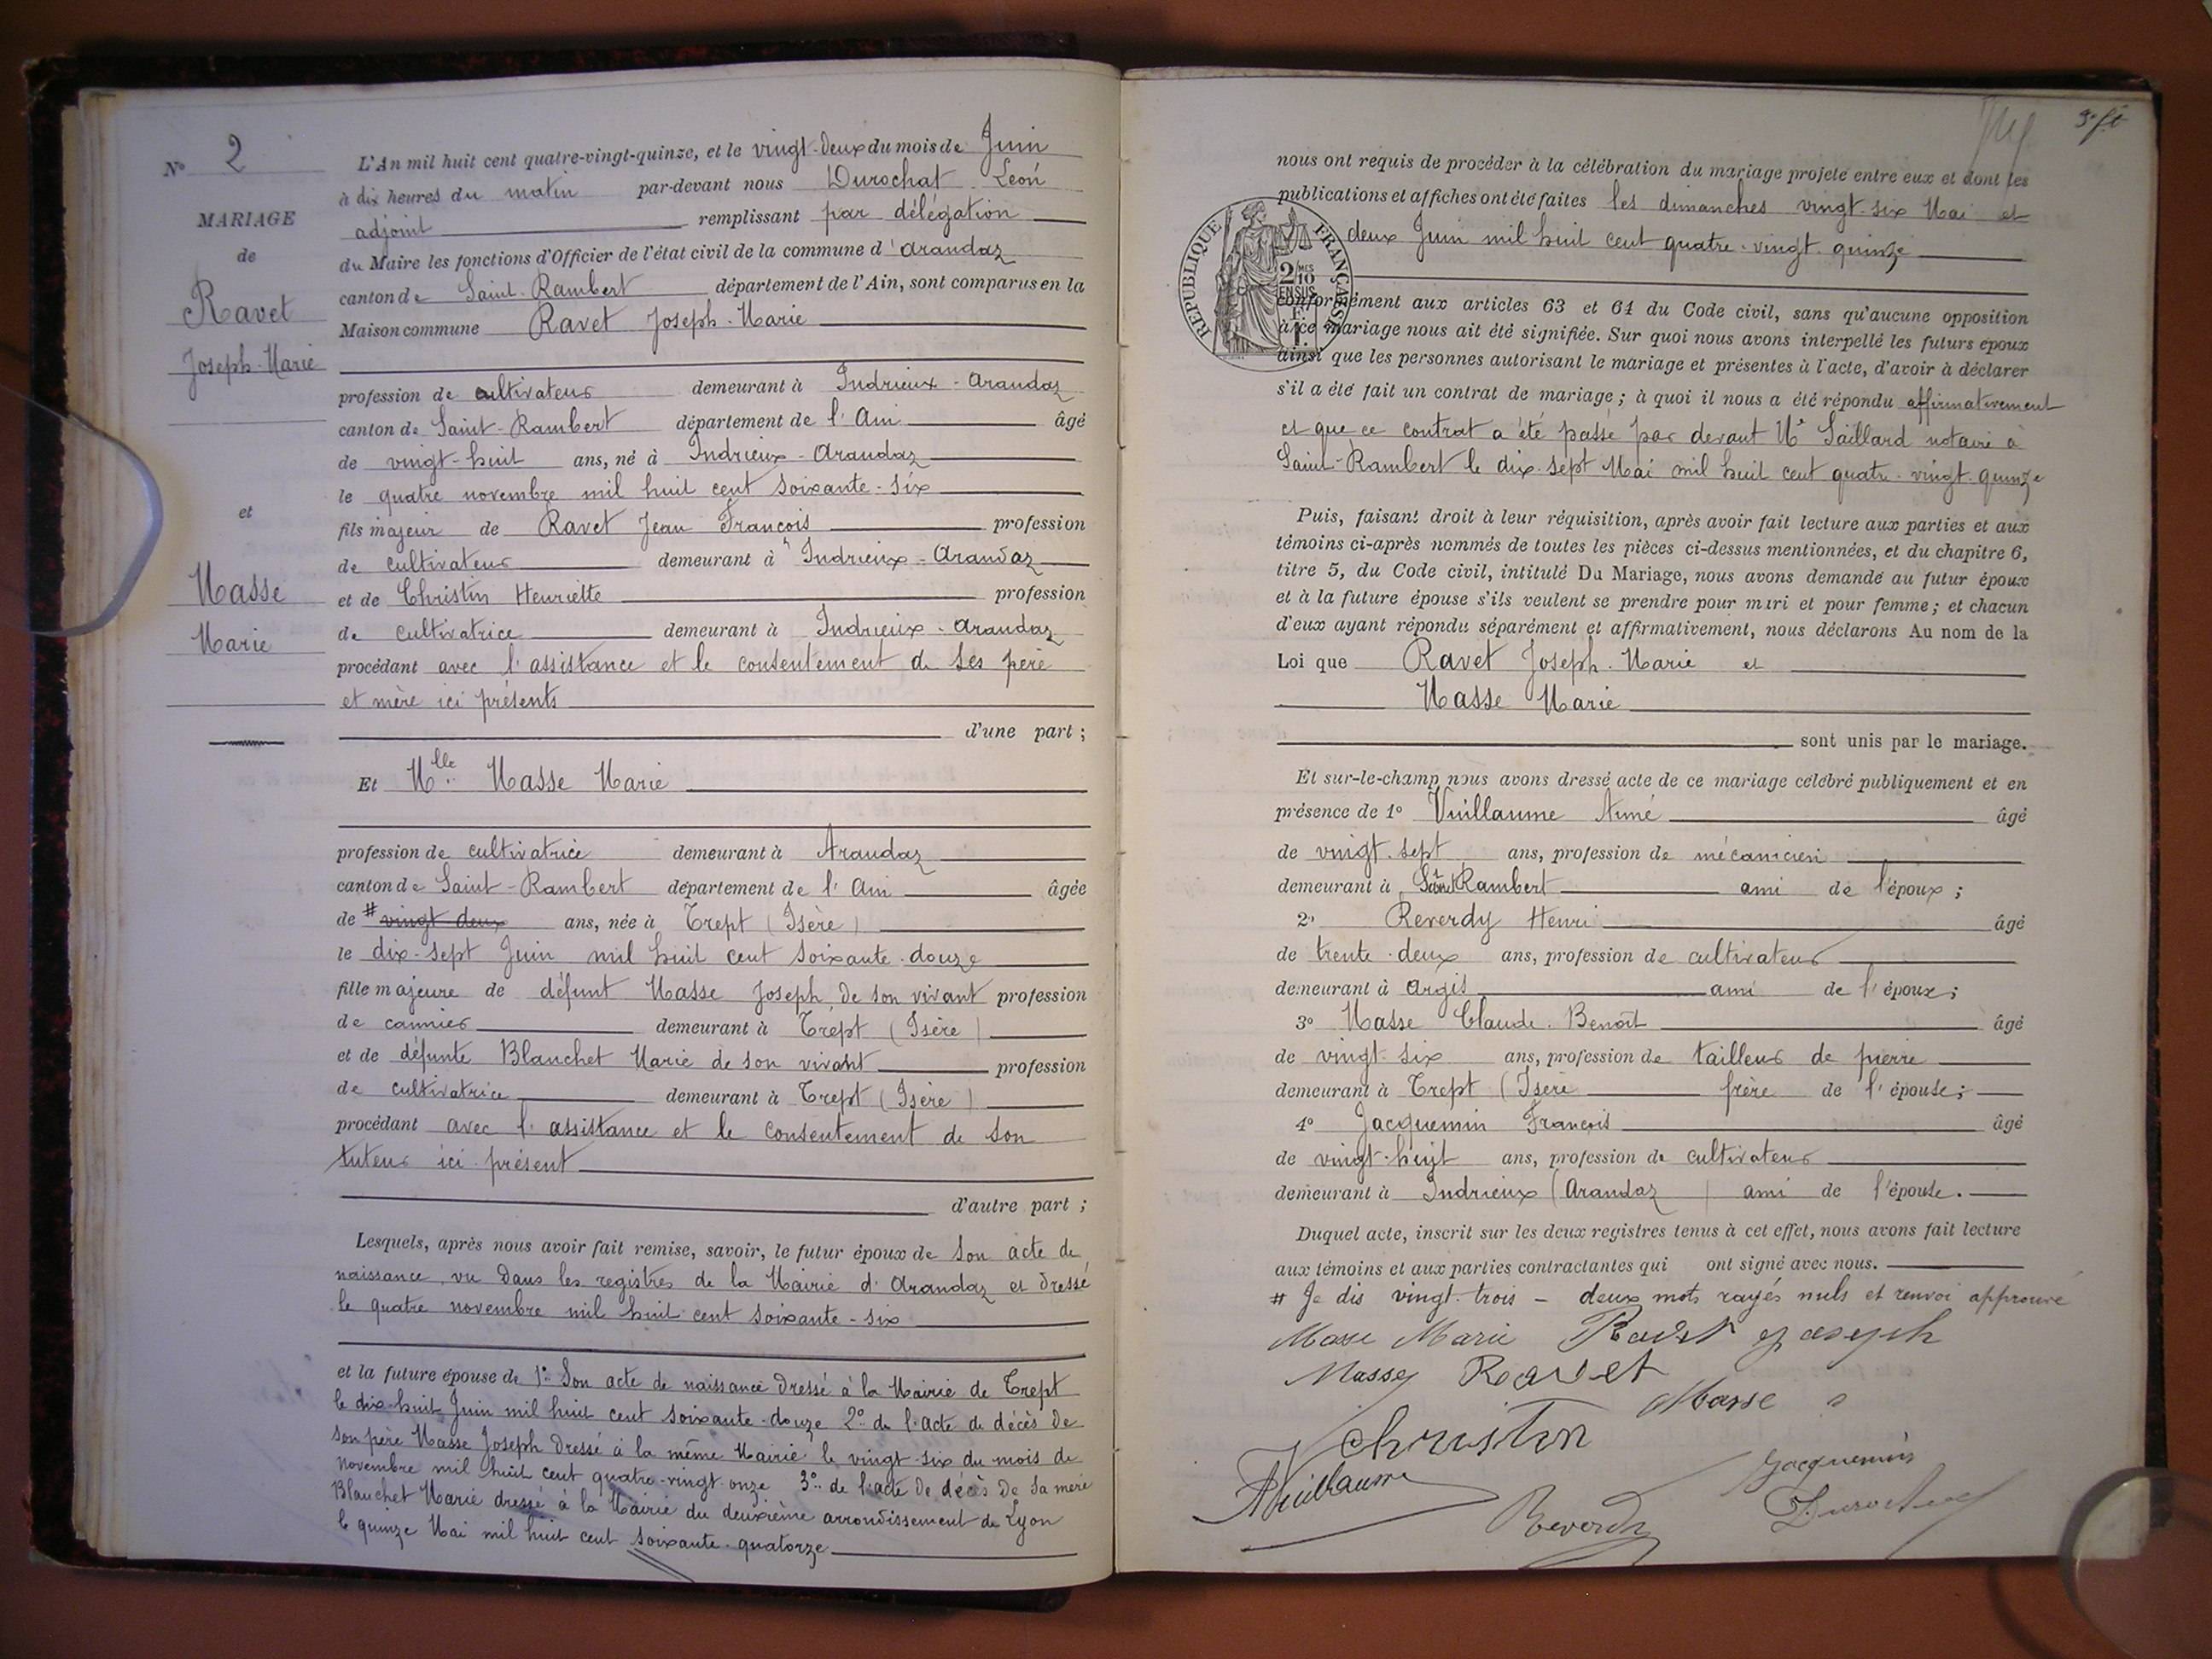 N° 2
MARIAGE
de
Ravet
Joseph-Marie
et
Masse
Marie
L'An mil huit cent quatre-vingt-quinze, et le vingt-deux du mois de Juin
à dix heures du matin par-devant nous Durochat Léon
adjoint remplissant par délégation
du Maire les fonctions d'Officier de l'état civil de la commune d'Arandaz
canton de Saint-Rambert département de l'Ain, sont comparus en la
Maison commune Ravet Joseph-Marie
profession de cultivateur demeurant à Indrieux-Arandaz
canton de Saint-Rambert département de l'Ain âgé
de vingt-huit ans, né à Indrieux-Arandaz
le quatre novembre mil huit cent soixante-six
fils majeur de Ravet Jean François profession
de cultivateur demeurant à Indrieux-Arandaz
et de Christin Henriette profession
de cultivatrice demeurant à Indrieux-Arandaz
procédant avec l'assistance et le consentement de ses père
et mère ici présents
d'une part ;
Et Mlle Masse Marie
profession de cultivatrice demeurant à Arandaz
canton de Saint-Rambert département de l'Ain âgée
de # vingt deux ans, née à Trept (Isère)
le dix-sept Juin mil huit cent soixante-douze
fille majeure de défunt Masse Joseph de son vivant profession
de carrier demeurant à Trépt (Isère)
et de défunte Blanchet Marie de son vivant profession
de cultivatrice demeurant à Trept (Isère)
procédant avec l'assistance et le consentement de son
tuteur ici présent
d'autre part ;
Lesquels, après nous avoir fait remise, savoir, le futur époux de son acte de
naissance vu dans les registres de la Mairie d'Arandaz et dressé
le quatre novembre mil huit cent soixante-six
et la future épouse de 1° Son acte de naissance dressé à la Mairie de Trept
le dix-huit Juin mil huit cent soixante-douze 2° de l'acte de décès de
son père Masse Joseph dressé à la même Mairie le vingt-six du mois de
novembre mil huit cent quatre-vingt-onze 3° de l'acte de décès de sa mère
Blanchet Marie dressé à la Mairie du deuxième arrondissement de Lyon
le quinze Mai mil huit cent soixante-quatorze
3e ft
nous ont requis de procéder à la célébration du mariage projeté entre eux et dont les
publications et affiches ont été faites les dimanches vingt-six Mai et
deux Juin mil huit cent quatre-vingt-quinze
RÉPUBLIQUE FRANÇAISE
2 MES 10
EN SUS
1 F.
conformément aux articles 63 et 64 du Code civil, sans qu'aucune opposition
à ce mariage nous ait été signifiée. Sur quoi nous avons interpellé les futurs époux
ainsi que les personnes autorisant le mariage et présentes à l'acte, d'avoir à déclarer
s'il a été fait un contrat de mariage ; à quoi il nous a été répondu affirmativement
et que ce contrat a été passé par devant Me Saillard notaire à
Saint-Rambert le dix-sept Mai mil huit cent quatre-vingt-quinze
Puis, faisant droit à leur réquisition, après avoir fait lecture aux parties et aux
témoins ci-après nommés de toutes les pièces ci-dessus mentionnées, et du chapitre 6,
titre 5, du Code civil, intitulé Du Mariage, nous avons demandé au futur époux
et à la future épouse s'ils veulent se prendre pour mari et pour femme ; et chacun
d'eux ayant répondu séparément et affirmativement, nous déclarons Au nom de la
Loi que Ravet Joseph-Marie et
Masse Marie
sont unis par le mariage.
Et sur-le-champ nous avons dressé acte de ce mariage célébré publiquement et en
présence de 1° Vuillaume Aimé âgé
de vingt-sept ans, profession de mécanicien
demeurant à Saint Rambert ami de l'époux ;
2° Reverdy Henri âgé
de trente-deux ans, profession de cultivateur
demeurant à Argis ami de l'époux ;
3° Masse Claude-Benoît âgé
de vingt-six ans, profession de tailleur de pierre
demeurant à Trept (Isère frère de l'épouse ;
4° Jacquemin François âgé
de vingt-huit ans, profession de cultivateur
demeurant à Indrieux (Arandaz) ami de l'épouse.
Duquel acte, inscrit sur les deux registres tenus à cet effet, nous avons fait lecture
aux témoins et aux parties contractantes qui ont signé avec nous.
# Je dis vingt-trois - deux mots rayés nuls et renvoi approuvé
Masse Marie Ravet Joseph
Masse Ravet
Masse
Christin
AVuillaume
Jacquemin
Reverdy
Durochat